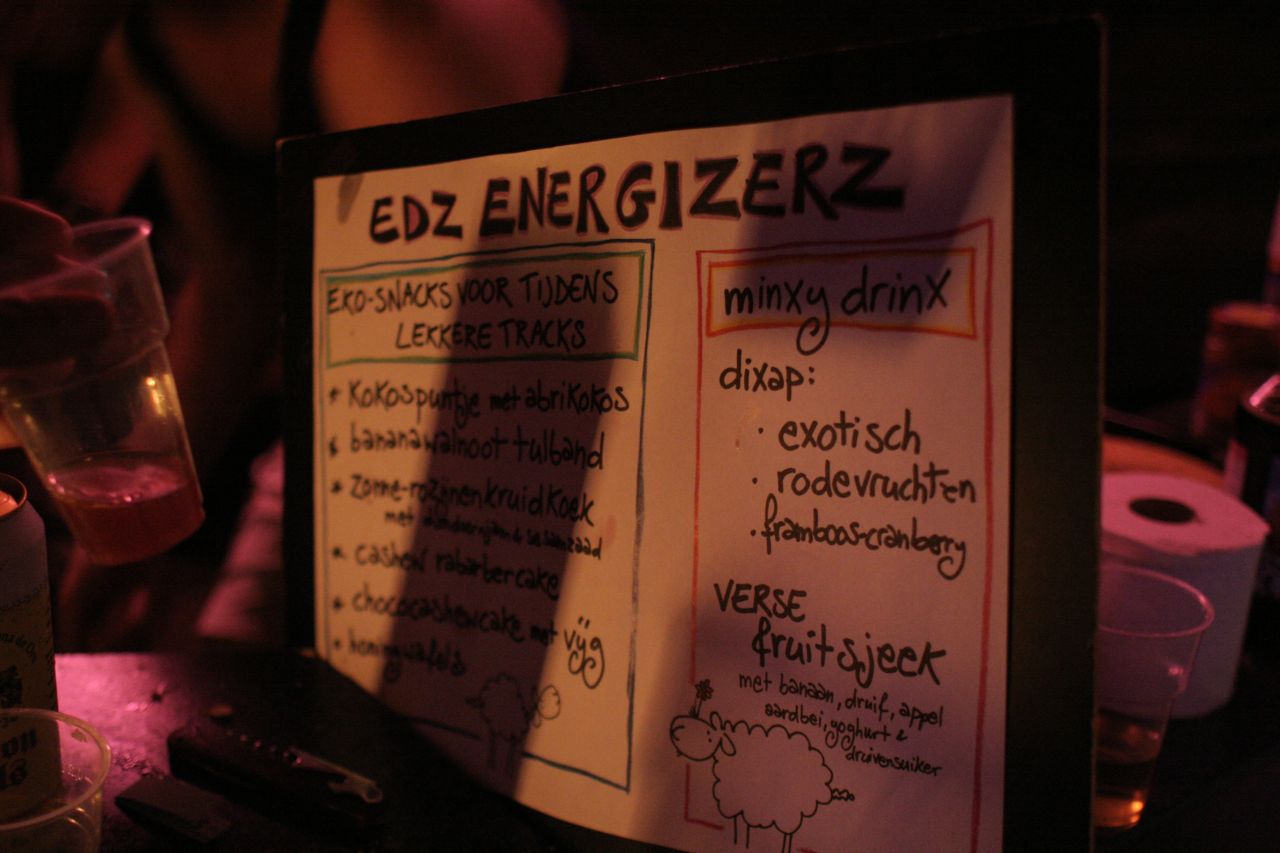 EDZ ENERGIZERZ
EKO-SNACKS VOOR TIJDENS
LEKKERE TRACKS
* Kokospuntje met abrikokos
* bananawalnoot tulband
* zonne-rozijnenkruidkoek
met &sesamzaad
* cashew rabarbercake
* chococashewcake met vijg
* honingwafels
minxy drinX
dixap:
· exotisch
· rodevruchten
· framboos-cranberry
VERSE
fruitsjeek
met banaan, druif, appel
aardbei, yoghurt &
druivensuiker